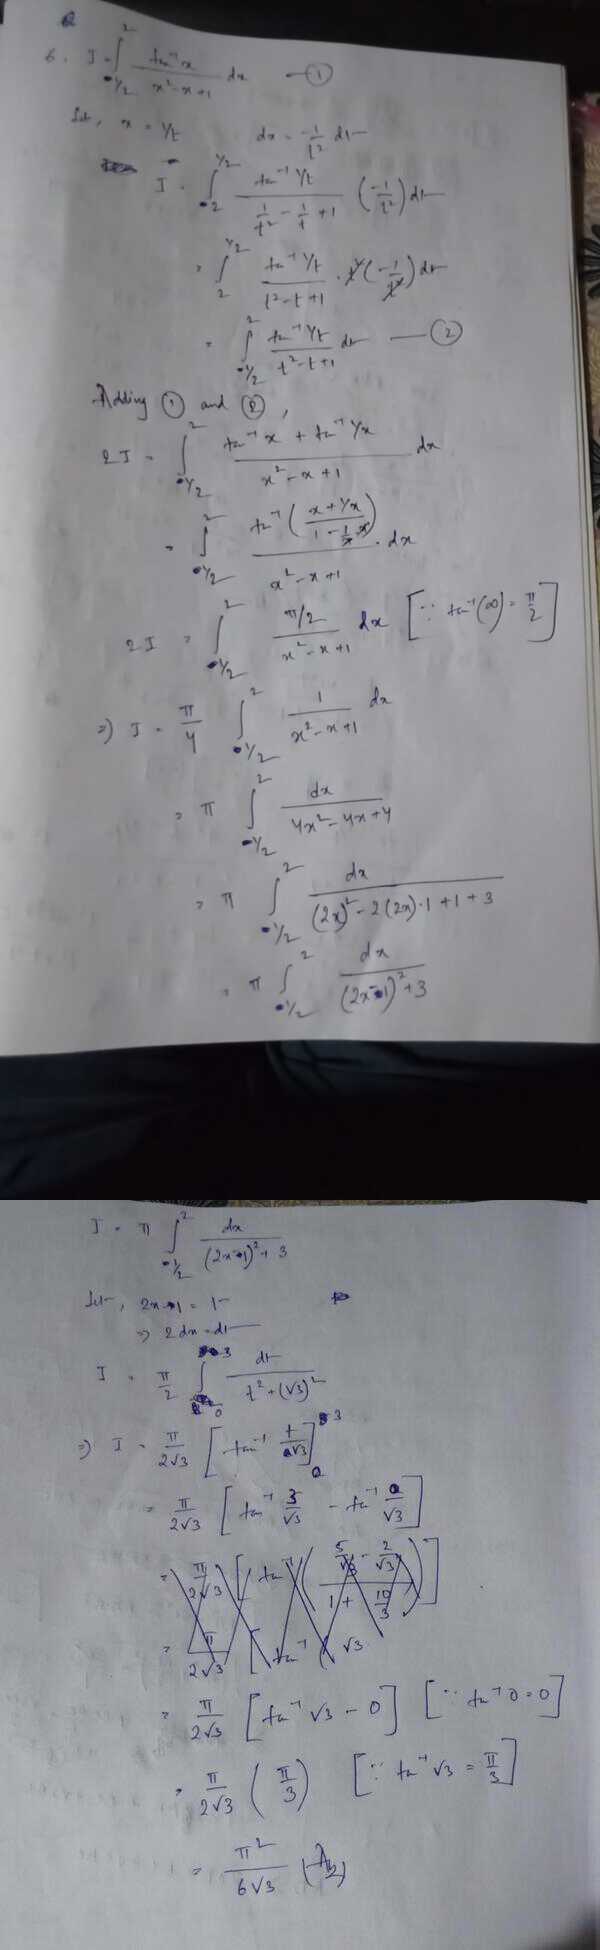 6. I = ∫_{1/2}^{2} tan⁻¹x / (x²-x+1) dx — ①
Let, x = 1/t dx = -1/t² dt
I = ∫_{2}^{1/2} tan⁻¹ 1/t / (1/t² - 1/t + 1) (-1/t²) dt
= ∫_{2}^{1/2} tan⁻¹ 1/t / (t²-t+1) · t² (-1/t²) dt
= ∫_{1/2}^{2} tan⁻¹ 1/t / (t²-t+1) dt — ②
Adding ① and ②,
2I = ∫_{1/2}^{2} (tan⁻¹x + tan⁻¹ 1/x) / (x²-x+1) dx
= ∫_{1/2}^{2} tan⁻¹ ((x + 1/x) / (1 - 1/x·x)) / (x²-x+1) · dx
2I = ∫_{1/2}^{2} (π/2) / (x²-x+1) dx [∵ tan⁻¹(∞) = π/2]
⇒ I = π/4 ∫_{1/2}^{2} 1 / (x²-x+1) dx
= π ∫_{1/2}^{2} dx / (4x²-4x+4)
= π ∫_{1/2}^{2} dx / ((2x)² - 2(2x)·1 + 1 + 3)
= π ∫_{1/2}^{2} dx / ((2x-1)² + 3)
I = π ∫_{1/2}^{2} dx / ((2x-1)² + 3)
Let, 2x-1 = t
⇒ 2dx = dt
I = π/2 ∫_{0}^{3} dt / (t² + (√3)²)
⇒ I = π/(2√3) [tan⁻¹ t/√3]_{0}^{3}
= π/(2√3) [tan⁻¹ 3/√3 - tan⁻¹ 0/√3]
= π/(2√3) [tan⁻¹ ((5/√3 - 2/√3) / (1 + 10/3))]
= π/(2√3) [tan⁻¹ ( √3
= π/(2√3) [tan⁻¹ √3 - 0] [∵ tan⁻¹ 0 = 0]
= π/(2√3) (π/3) [∵ tan⁻¹ √3 = π/3]
= π² / (6√3)